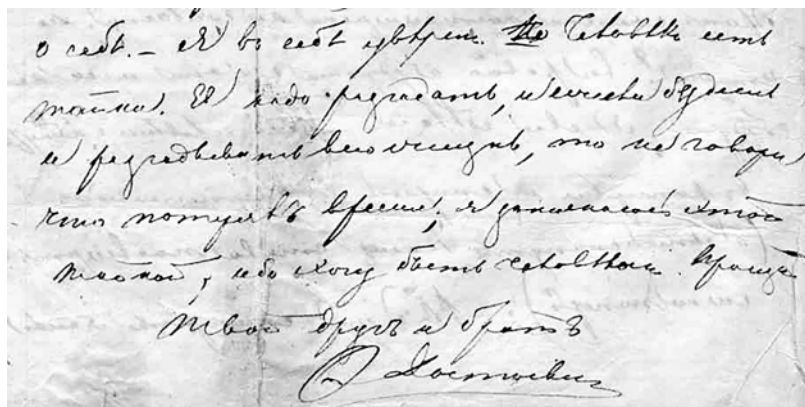 о себѣ. – Я въ себѣ увѣренъ. Человѣкъ есть
тайна. Её надо разгадать, и ежели будешь
её разгадывать всю жизнь, то не говори
что потерялъ время; я занимаюсь этой
тайной, ибо хочу быть человѣкомъ. Прощай
Твой другъ и братъ
Достоевскій